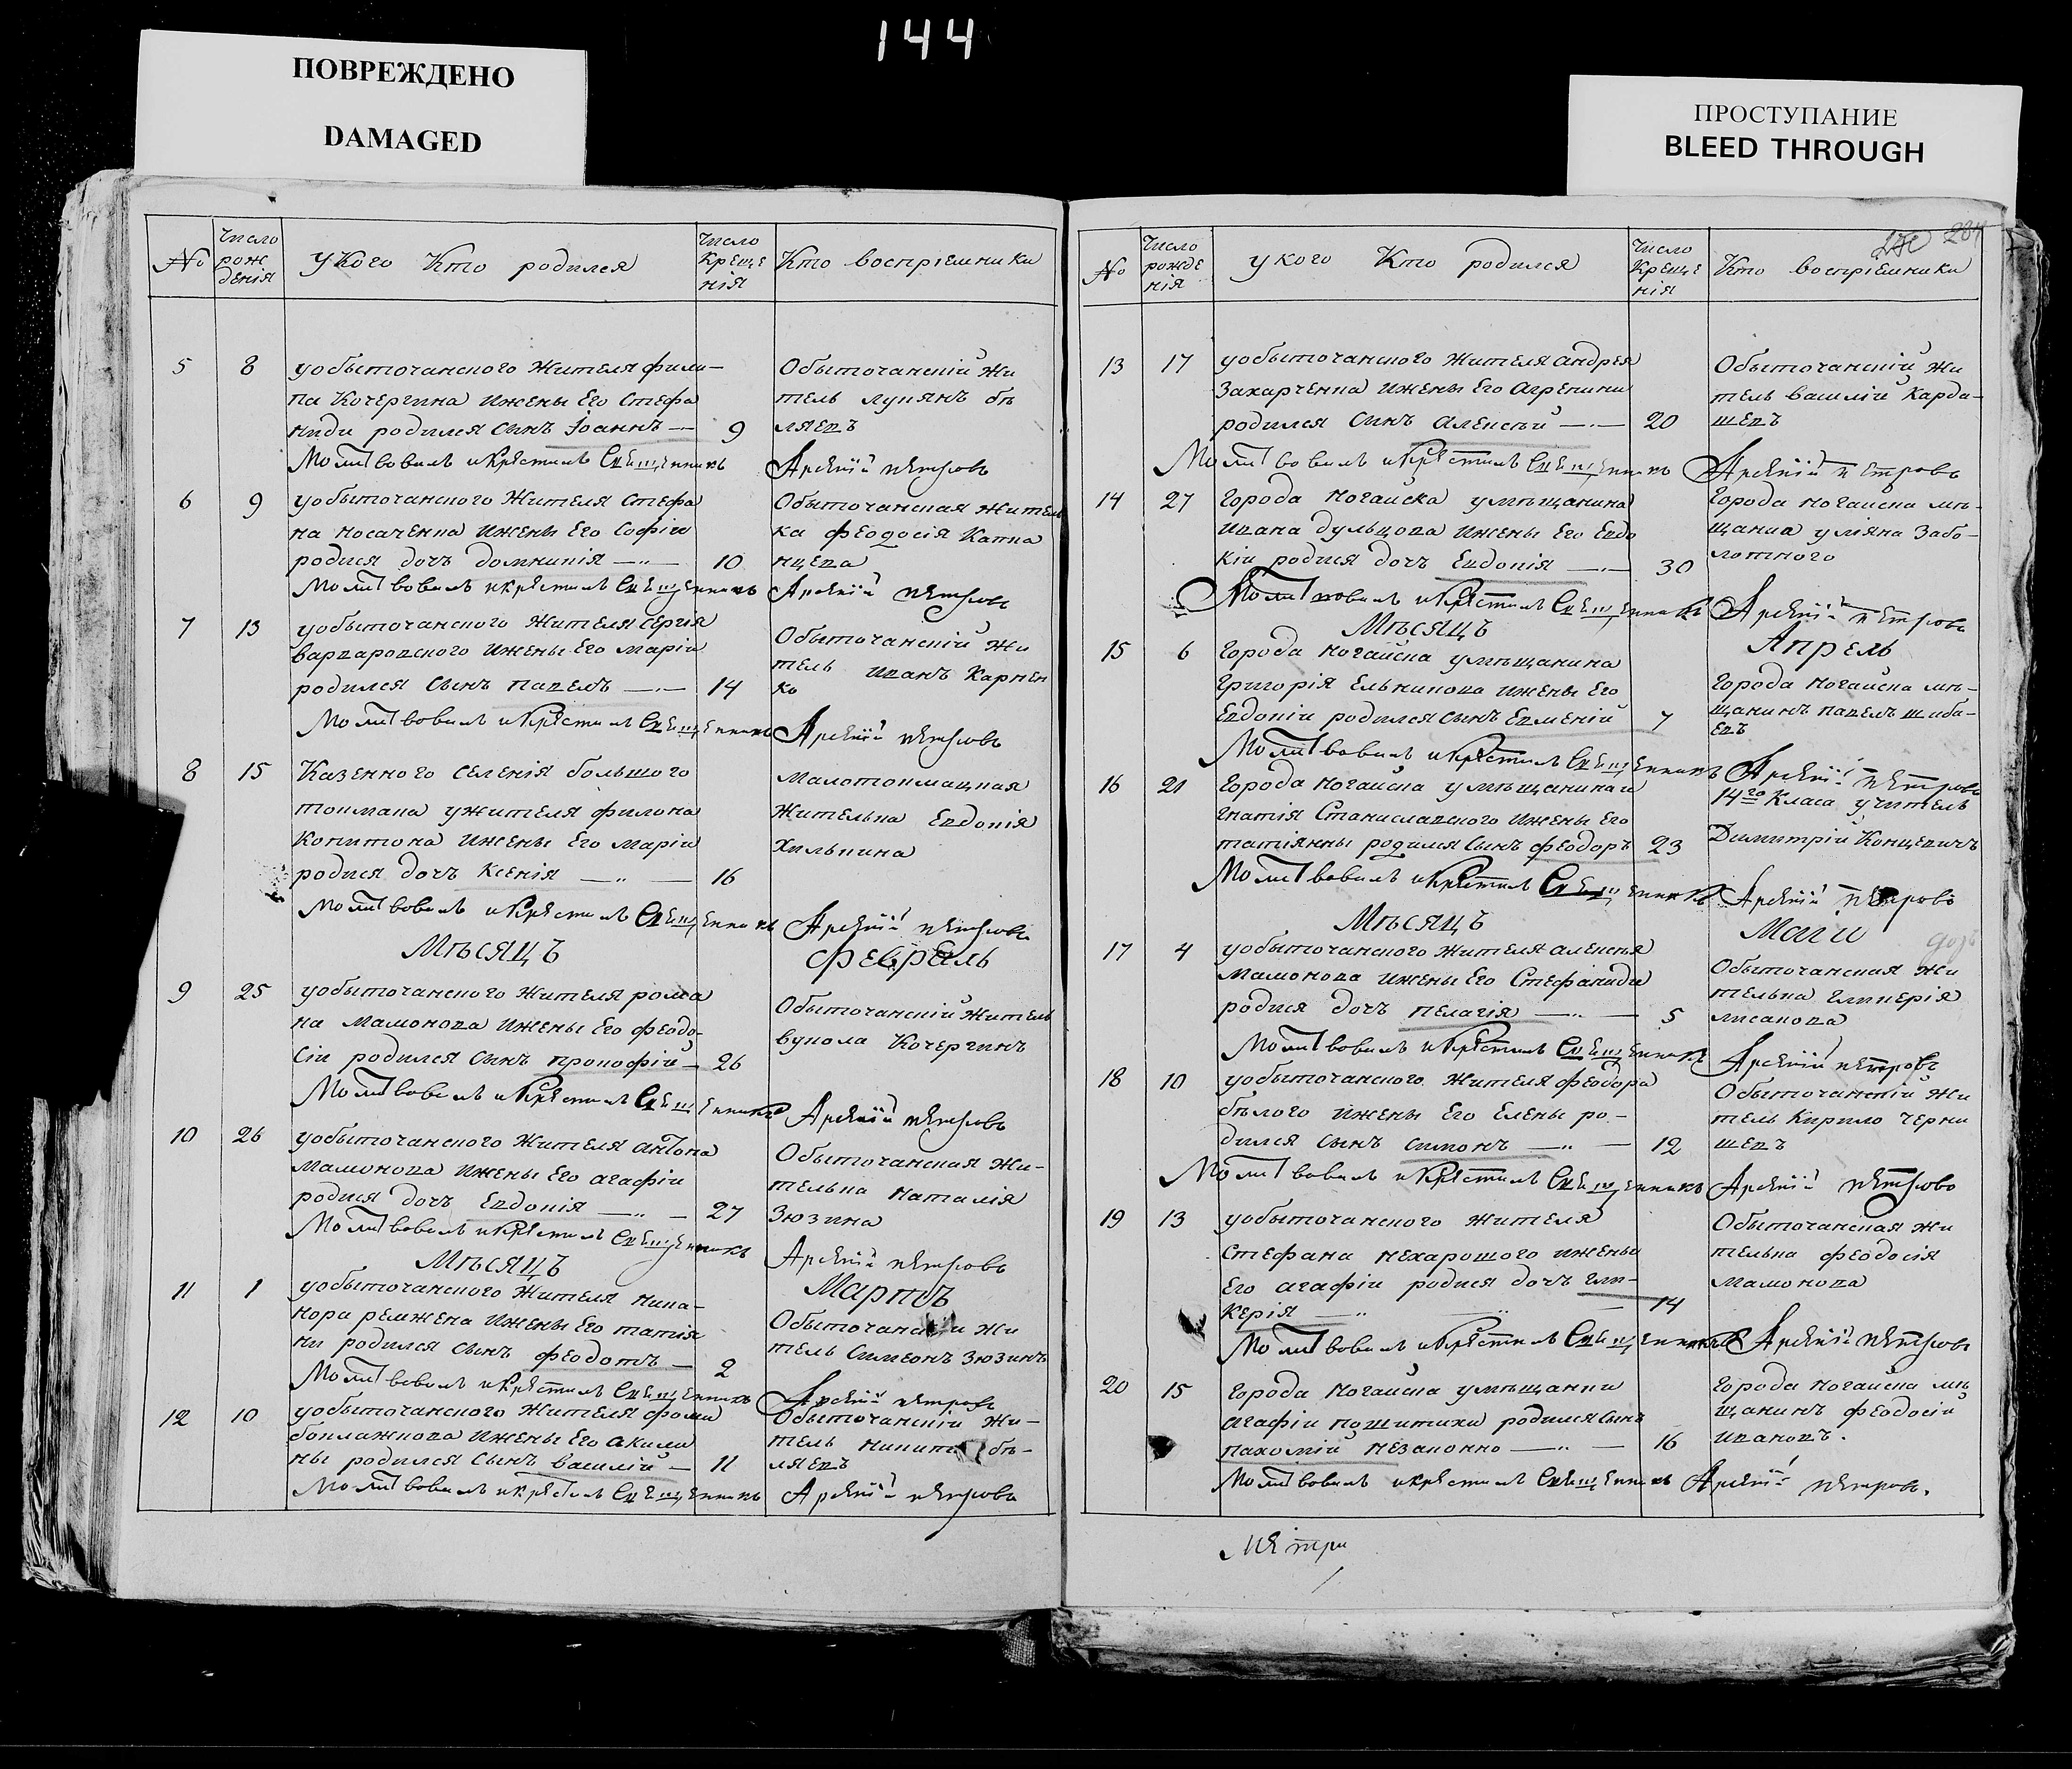 144
ПОВРЕЖДЕНО
DAMAGED
ПРОСТУПАНИЕ
BLEED THROUGH
№ Число рож денія У кого Кто родился Число Креще нія Кто воспріемники
5 8 уобыточанского жителя фили-
па Кочергина ижены Его Стефа
ниди родился сынъ Іоаннъ 9
Обыточанскій жи
тель лупянъ бѣ
ляевъ
Молитвовалъ и Крестилъ Священникъ Арсеній петровъ
6 9 уобыточанского жителя Стефа
на носаченка ижены Его Софіи
родися дочь домникія 10
Обыточанская жител
ка феодосія Капка
нцева
Молитвовалъ и крестилъ Священникъ Арсеній петровъ
7 13 уобыточанского жителя Сергія
варваровского ижены Его маріи
родился сынъ павелъ 14
Обыточанскій жи
тель иванъ Карпен
ко
Молитвовалъ и Крестилъ Священникъ Арсеній петровъ
8 15 Казенного селенія большого
токмака ужителя филона
Копитона ижены Его маріи
родися дочь Ксенія 16
малотокмацкая
жителька Евдокія
Хилькина
Молитвовалъ и Крестилъ Священникъ Арсеній петровъ
Мѣсяцъ февраль
9 25 уобыточанского жителя рома
на мамонова ижены Его феодо-
сіи родился сынъ прокофій 26
Обыточанскій житель
вукола Кочергинъ
Молитвовалъ и Крестилъ Священникъ Арсеній петровъ
10 26 уобыточанского жителя антона
мамонова ижены Его агафіи
родися дочь Евдокія 27
Обыточанская жи-
телька наталія
Зюзина
Молитвовалъ и Крестилъ Священникъ Арсеній петровъ
Мѣсяцъ Мартъ
11 1 уобыточанского жителя ника-
нора ремжена ижены Его татія
ни родился сынъ феодотъ 2
Обыточанскій жи
тель Симеонъ Зюзинъ
Молитвовалъ и Крестилъ Священникъ Арсеній петровъ
12 10 уобыточанского жителя фоми
боклажкова ижены Его акили
ны родился сынъ василій 11
Обыточанскій жи-
тель никита бѣ-
ляевъ
Молитвовалъ и крестилъ Священникъ Арсеній петровъ
284
№ Число рожде нія у кого Кто родился Число Креще нія Кто воспріемники
13 17 уобыточанского жителя андрея
Захарченка ижены Его агрепини
родился сынъ алексѣй 20
Обыточанскій жи
тель василій Карда-
шевъ
Молитвовалъ и Крестилъ Священникъ Арсеній петровъ
14 27 Города ногайска умѣщанина
ивана дульцова ижены Его Евдо
Кіи родися дочь Евдокія 30
Города ногайска мѣ-
щанка уліяна Забо-
лотного
Молитвовалъ и Крестилъ Священникъ Арсеній петровъ
Мѣсяцъ Апрель
15 6 Города ногайска умѣщанина
григорія Ельникова ижены Его
Евдокіи родился сынъ Евмений 7
Города ногайска мѣ-
щанинъ павелъ шиба-
евъ
Молитвовалъ и Крестилъ Священникъ Арсеній петровъ
16 21 Города ногайска умѣщанина и
гнатія Станиславского ижены Его
татіянны родился сынъ феодоръ 23
14го Класа учитель
Димитрій Концевичъ
Молитвовалъ и Крестилъ Священникъ Арсеній петровъ
Мѣсяцъ Маіи
17 4 уобыточанского жителя алексѣя
мамонова ижены Его Стефаниди
родися дочь пелагія 5
Обыточанская жи
телька гликерія
лисакова
Молитвовалъ и Крестилъ Священникъ Арсеній петровъ
18 10 уобыточанского жителя феодора
бѣлого ижены Его Елены ро-
дился сынъ симонъ 12
Обыточанскій жи
тель Кирило черни
шевъ
Молитвовалъ и Крестилъ Священникъ Арсеній петровъ
19 13 уобыточанского жителя
Стефана нехарошого ижены
Его агафіи родися дочь гли-
керія 14
Обыточанская жи
телька феодосія
мамонова
Молитвовалъ и Крестилъ Священникъ Арсеній петровъ
20 15 Города ногайска умѣщанки
агафіи покшитики родился сынъ
пахомій незаконно 16
Города ногайска мѣ
щанинъ феодосій
ивановъ.
Молитвовалъ и крестилъ Священникъ Арсеній петровъ.
метри